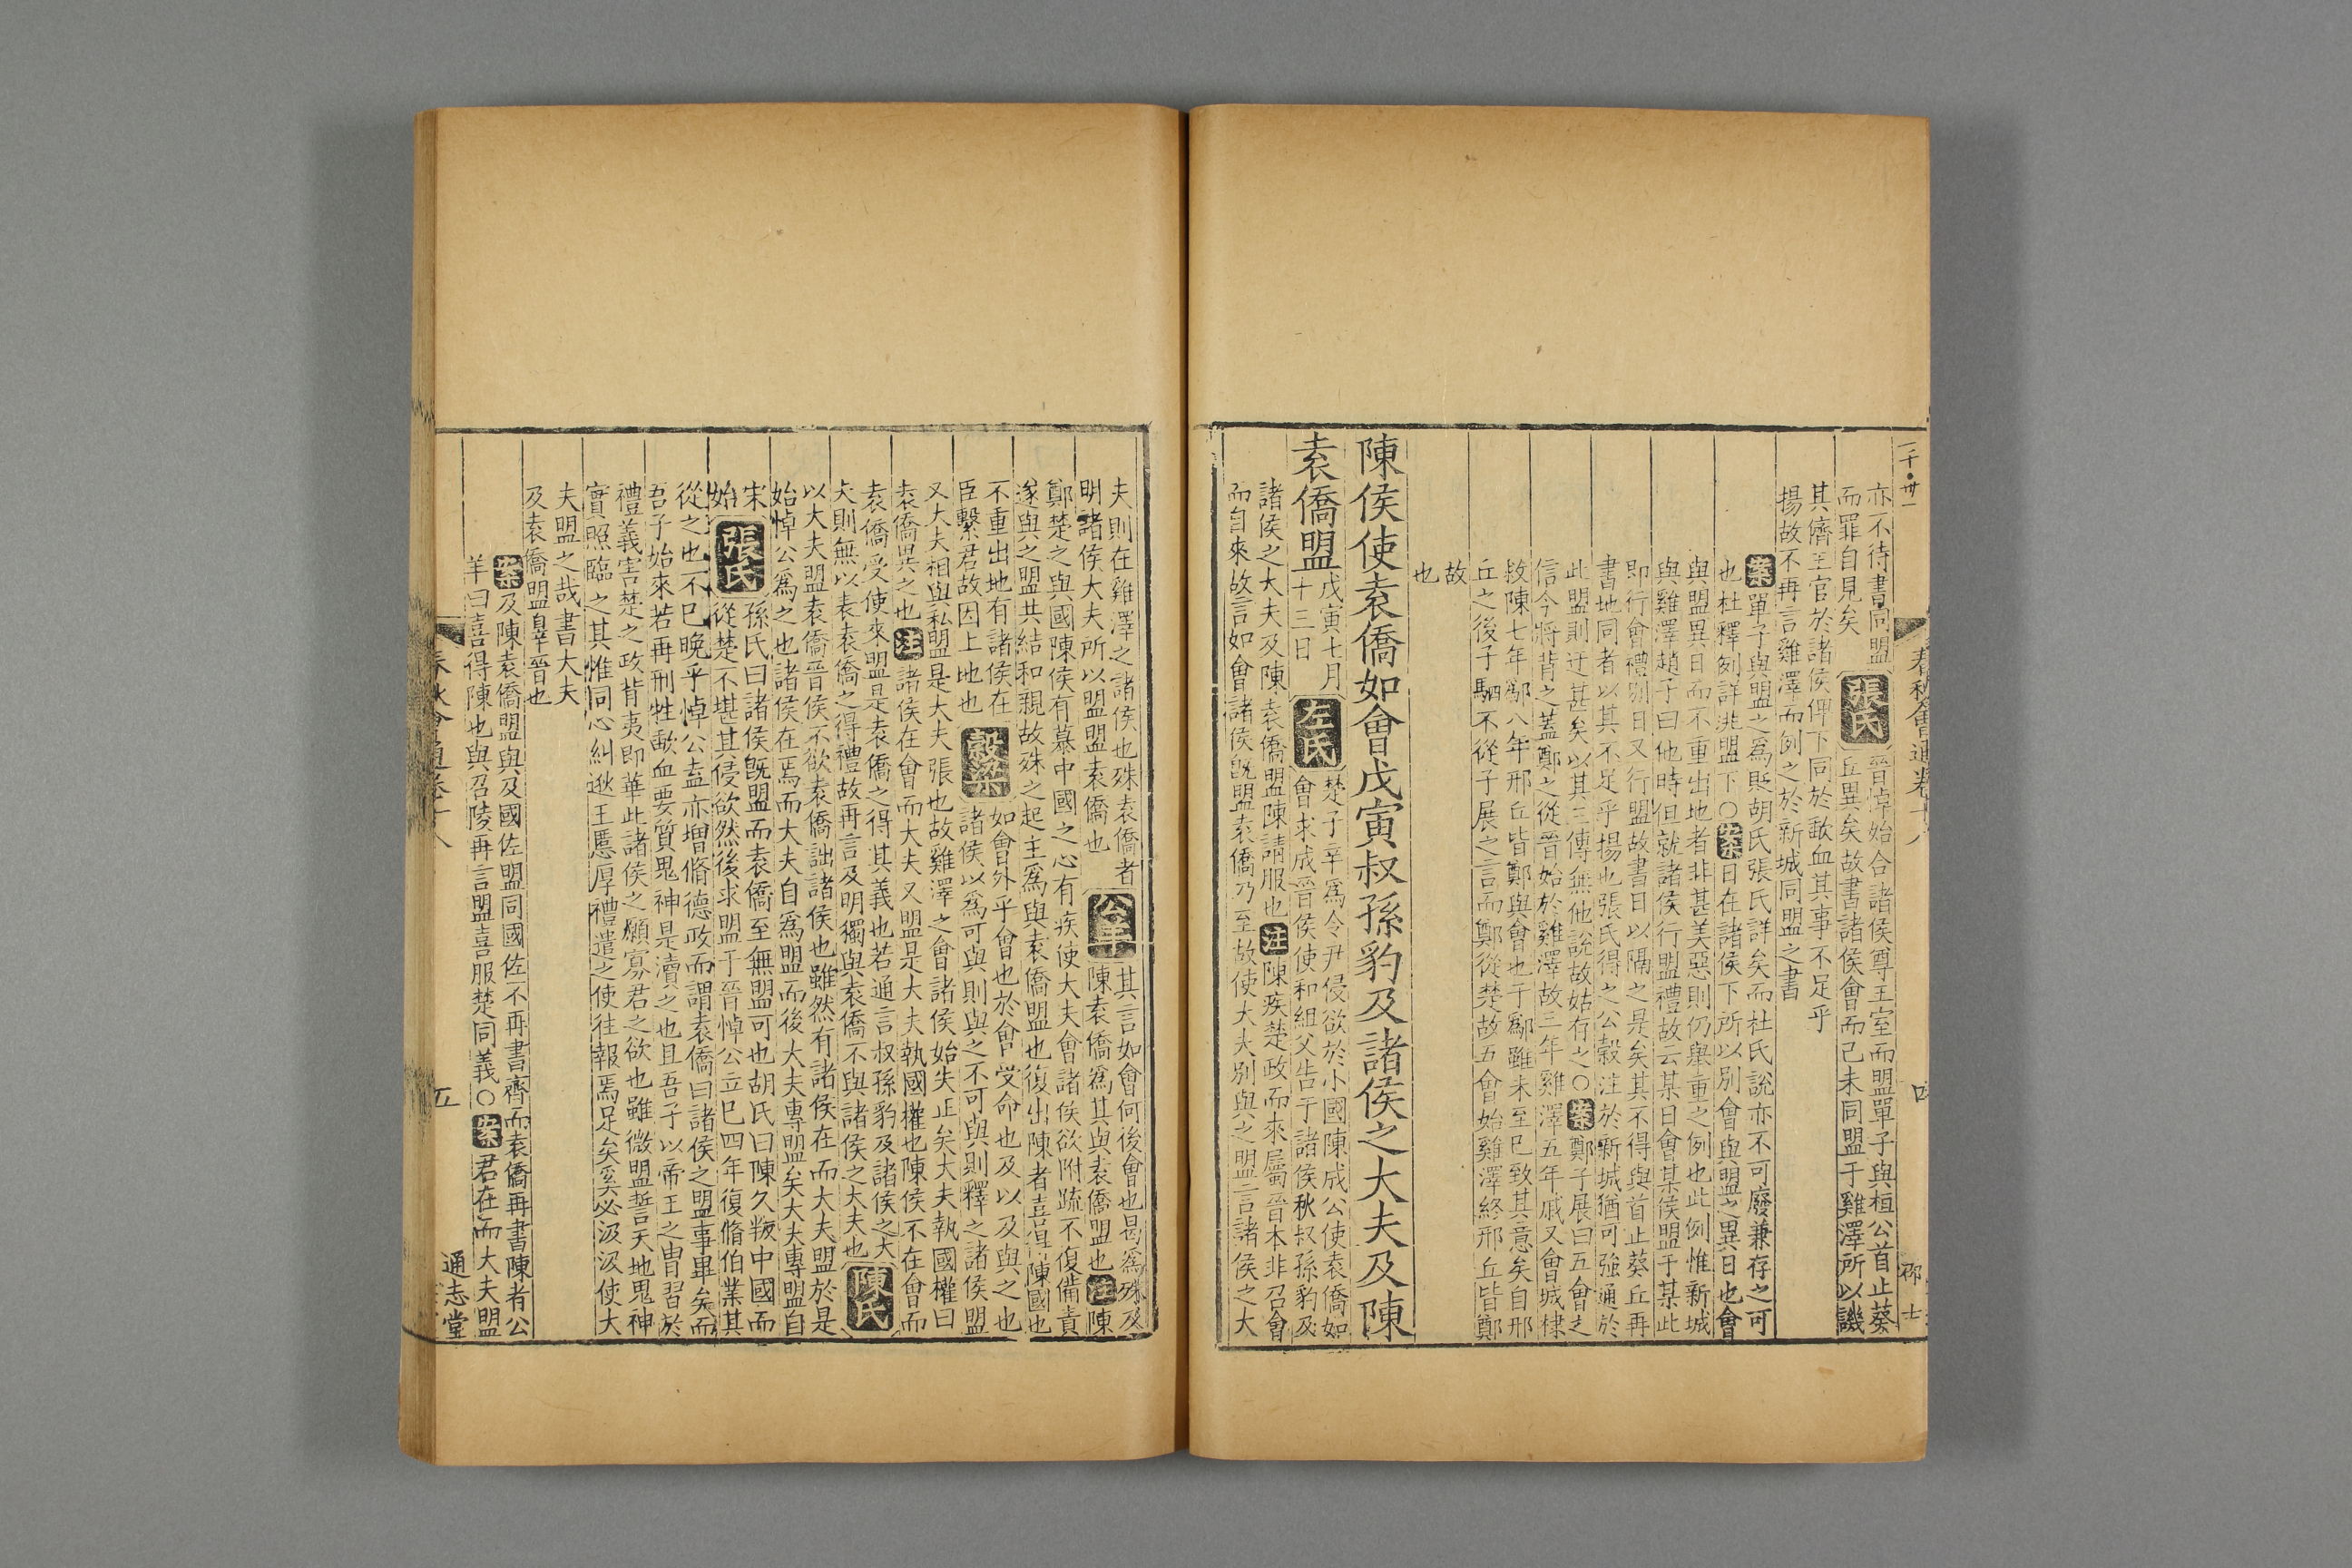 二千•卅一
春秋會通卷十八
四
亦不待書同盟
而罪自見矣
張氏
晉悼始合諸侯尊王室而盟單子與桓公首止葵
丘異矣故書諸侯會而己未同盟于雞澤所以譏
其儕王官於諸侯俾下同於歃血其事不足乎
揚故不再言雞澤而例之於新城同盟之書
案單子與盟之為貶胡氏張氏詳矣而杜氏說亦不可廢兼存之可
也杜釋例詳洮盟下○案日在諸侯下所以別會與盟之異日也會
與盟異日而不重出地者非甚美惡則仍舉重之例也此例惟新城
與雞澤趙子曰他時但就諸侯行盟禮故云某日會某侯盟于某此
即行會禮別日又行盟故書日以隔之是矣其不得與首止葵丘再
書地同者以其不足乎揚也張氏得之公穀注於新城猶可強通於
此盟則迂甚矣以其三傳無他說故姑存之○案鄭子展曰五會之
信今將背之蓋鄭之從晉始於雞澤故三年雞澤五年戚又會城棣
救陳七年鄬八年邢丘皆鄭與會也于鄬雖未至已致其意矣自邢
丘之後子駟不從子展之言而鄭從楚故五會始雞澤終邢丘皆鄭
故
也
陳侯使袁僑如會戊寅叔孫豹及諸侯之大夫及陳
袁僑盟
戊寅七月
十三日
左氏
楚子辛為令尹侵欲於小國陳成公使袁僑如
會求成晉侯使和組父告于諸侯秋叔孫豹及
諸侯之大夫及陳袁僑盟陳請服也注陳疾楚政而來屬晉本非召會
而自來故言如會諸侯既盟袁僑乃至故使大夫別與之盟言諸侯之大
夫則在雞澤之諸侯也殊袁僑者
明諸侯大夫所以盟盟袁僑也
公羊
其言如會何後會也曷為殊及
陳袁僑為其與袁僑盟也注陳
鄭楚之與國陳侯有慕中國之心有疾使大夫會諸侯欲附疏不復備責
遂與之盟共結和親故殊之起主為與袁僑盟也復出陳者喜得陳國也
不重出地有諸侯在
臣繫君故因上地也
穀梁
如會外乎會也於會受命也及以及與之也
諸侯以為可與則與之不可與則釋之諸侯盟
又大夫相與私盟是大夫張也故雞澤之會諸侯始失正矣大夫執國權曰
袁僑異之也注諸侯在會而大夫又盟是大夫執國權也陳侯不在會而
袁僑受使來盟是袁僑之得其義也若通言叔孫豹及諸侯之大
夫則無以表袁僑之得禮故再言及明獨與袁僑不與諸侯之大夫也
陳氏
以大夫盟袁僑晉侯不欲袁僑詘諸侯也雖然有諸侯在而大夫盟於是
始悼公為之也諸侯在焉而大夫自為盟而後大夫專盟矣大夫專盟自
宋
始
張氏
孫氏曰諸侯既盟而袁僑至無盟可也胡氏曰陳久叛中國而
從楚不堪其侵欲然後求盟于晉悼公立已四年復脩伯業其
從之也不已晚乎悼公盍亦增脩德政而謂袁僑曰諸侯之盟事畢矣而
吾子始來若再刑牲歃血要質鬼神是瀆之也且吾子以帝王之冑習於
禮義害楚之政背夷即華此諸侯之願寡君之欲也雖微盟誓天地鬼神
實照臨之其惟同心糾逖王慝厚禮遣之使往報焉足矣奚必汲汲使大
夫盟之哉書大夫
及袁僑盟辠晉也
案及陳袁僑盟與及國佐盟同國佐不再書齊而袁僑再書陳者公
羊曰喜得陳也與召陵再言盟喜服楚同義○案君在而大夫盟
春秋會通卷十八
五
通志堂